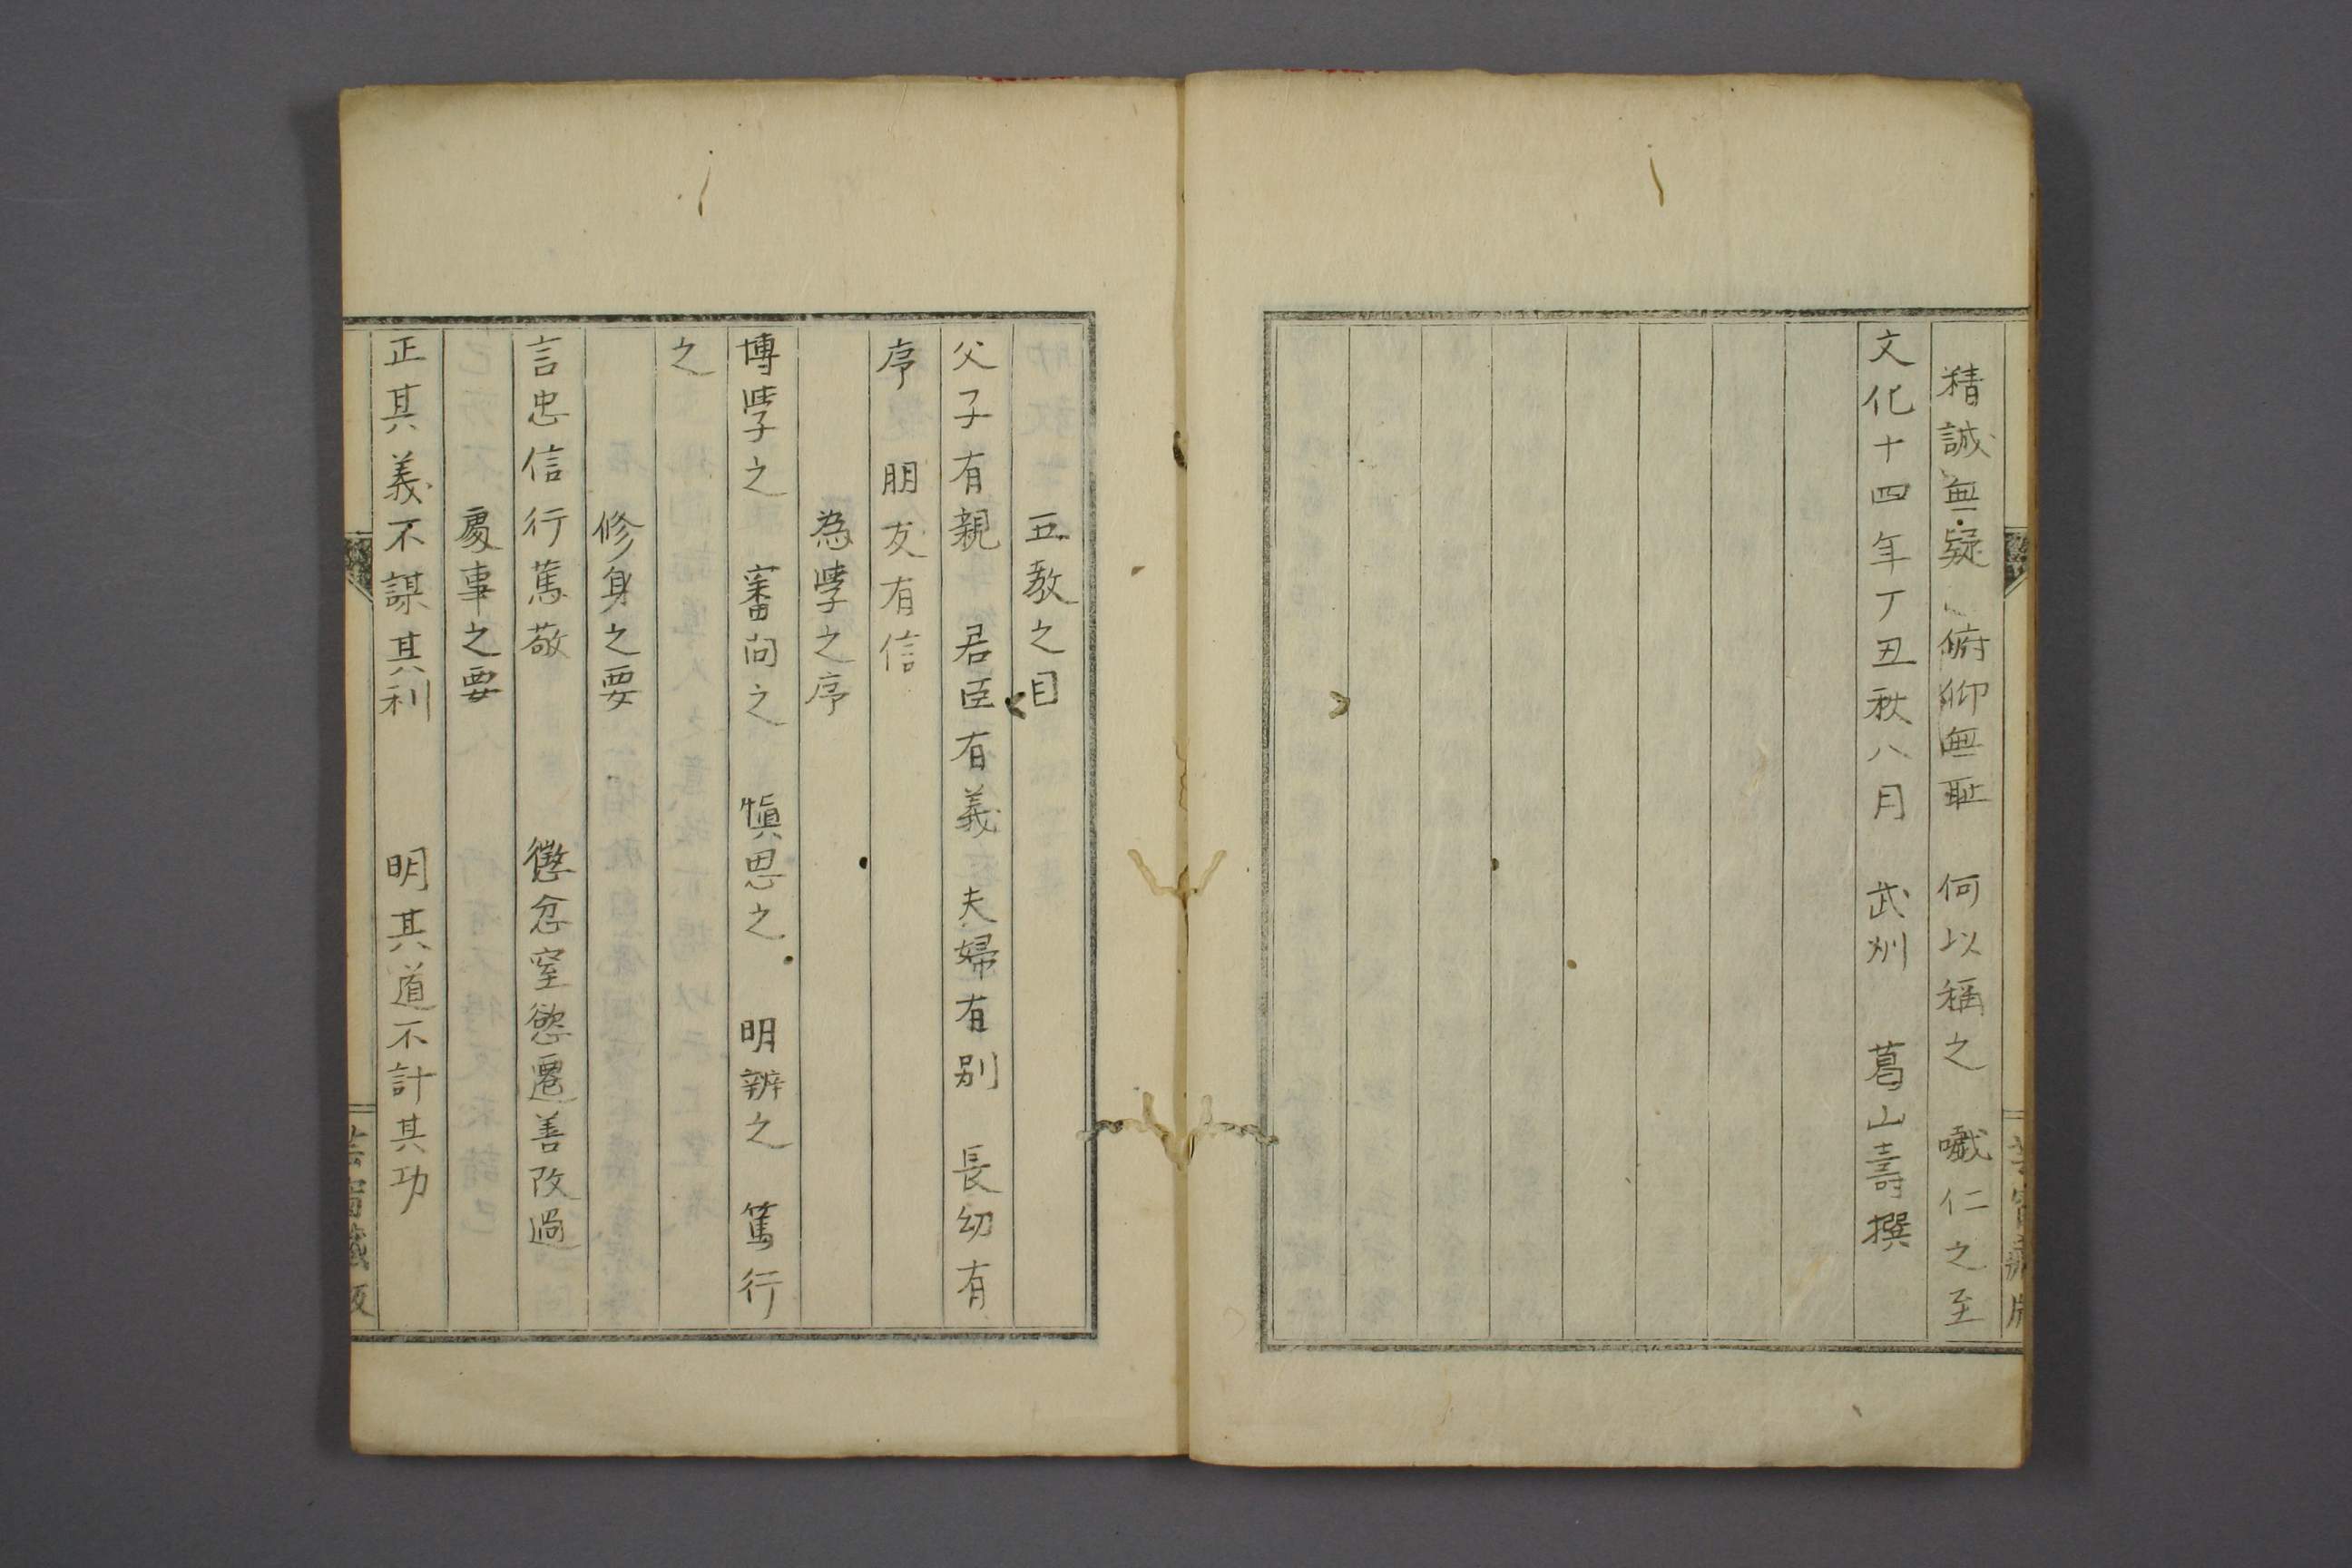 精誠無疑 俯仰無耻 何以稱之 噦仁之至
文化十四年丁丑秋八月 武州 葛山壽撰
五教之目
父子有親 君臣有義 夫婦有别 長幼有
序 朋友有信
為學之序
博學之 審問之 慎思之 明辨之 篤行
之
修身之要
言忠信行篤敬 懲忿窒慾遷善改過
處事之要
正其義不謀其利 明其道不計其功